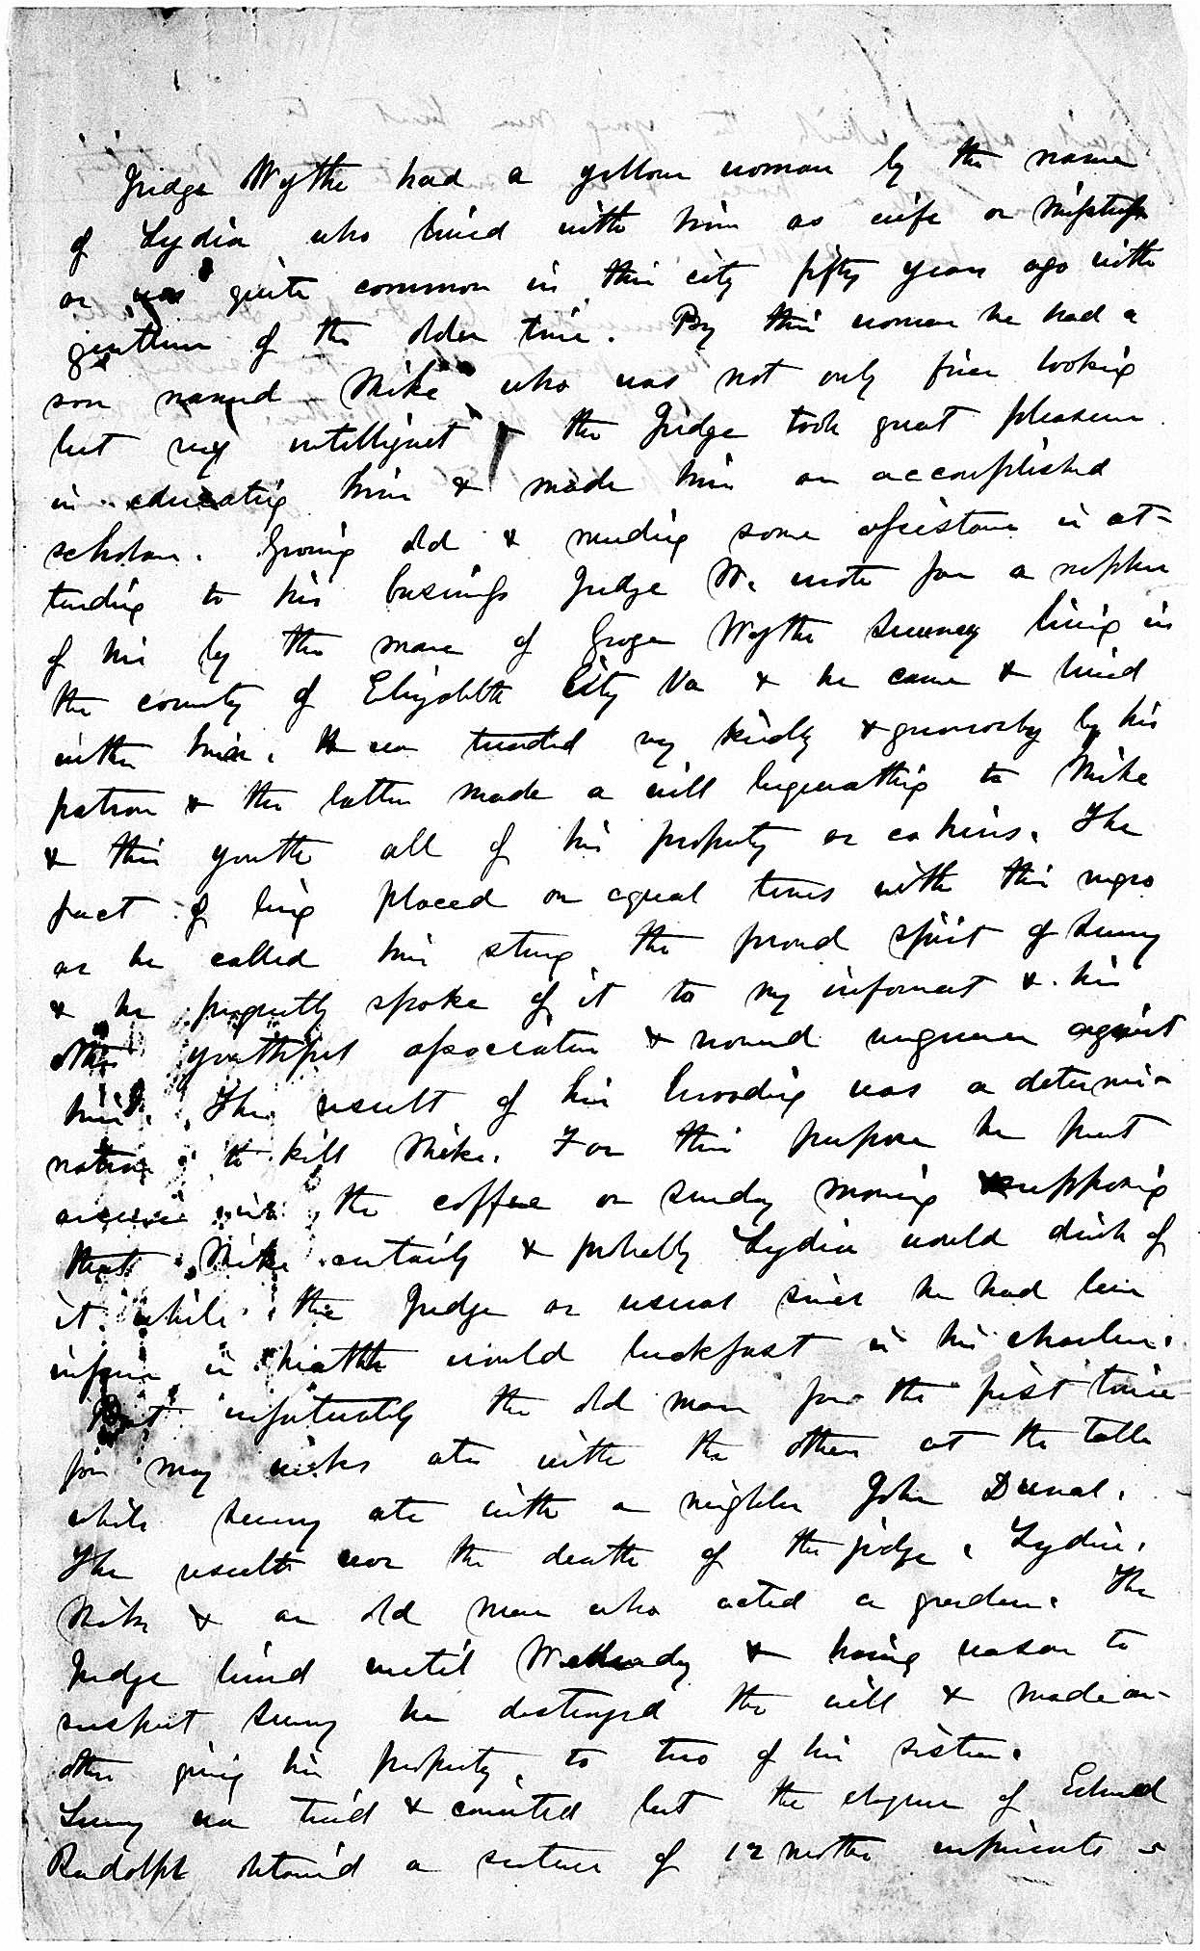 Judge Wythe had a yellow woman by the name
of Lydia who lived with him as wife or mistress
as was quite common in this city fifty years ago with
gentlemen of the older time. By this woman he had a
son named Mike who was not only fine looking
but very intelligent & the Judge took great pleasure
in educating him & made him an accomplished
scholar. Growing old & needing some assistance in at-
tending to his business Judge W. wrote for a nephew
of his by the name of George Wythe Sweeney living in
the county of Elizabeth City Va & he came & lived
with him. He was treated very kindly & generously by his
patron & the latter made a will bequeathing to Mike
& this youth all of his property as coheirs. The
fact of being placed on equal terms with this negro
as he called him stung the proud spirit of Sweeny
& he frequently spoke of it to my informant & his
other youthful associates & vowed vengeance against
him. The result of his brooding was a determi-
nation to kill Mike. For this purpose he put
arsenic in the coffee on Sunday morning supposing
that Mike certainly & probably Lydia would drink of
it while the Judge as usual since he had been
infirm in health would breakfast in his chamber.
But unfortunately the old man for the first time
for many weeks ate with the others at the table
while Sweeny ate with a neighbor John Duval.
The result was the death of the judge, Lydia,
Mike & an old man who acted as gardener. The
Judge lived until Wednesday & having reason to
suspect Sweeny he destroyed the will & made an-
other giving his property to two of his sisters.
Sweeny was tried & convicted but the eloquence of Edmund
Randolph obtained a sentence of 12 months imprisonment